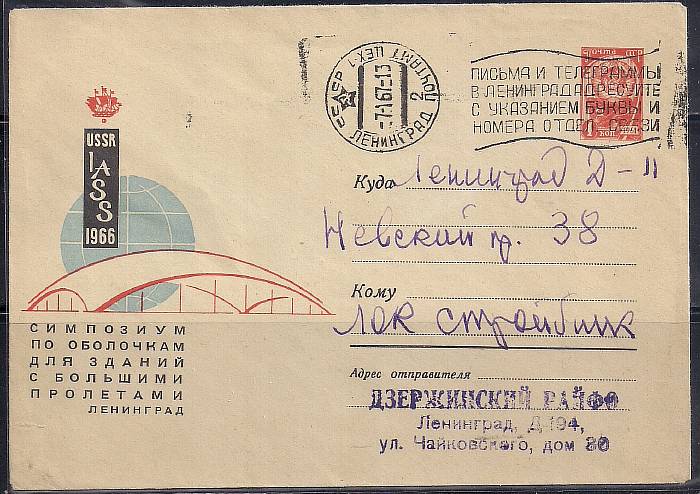 USSR
IASS
1966
СИМПОЗИУМ
ПО ОБОЛОЧКАМ
ДЛЯ ЗДАНИЙ
С БОЛЬШИМИ
ПРОЛЕТАМИ
ЛЕНИНГРАД
СССР ПОЧТАМТ ЦЕХ-1
-7.1.67-13
ЛЕНИНГРАД 2
ПИСЬМА И ТЕЛЕГРАММЫ
В ЛЕНИНГРАД АДРЕСУЙТЕ
С УКАЗАНИЕМ БУКВЫ И
НОМЕРА ОТДЕЛ. СВЯЗИ
Куда Ленинград Д-11
Невский п. 38
Кому
Лен стройбанк
Адрес отправителя
ДЗЕРЖИНСКИЙ РАЙФО
Ленинград, Д-194,
ул. Чайковского, дом 30